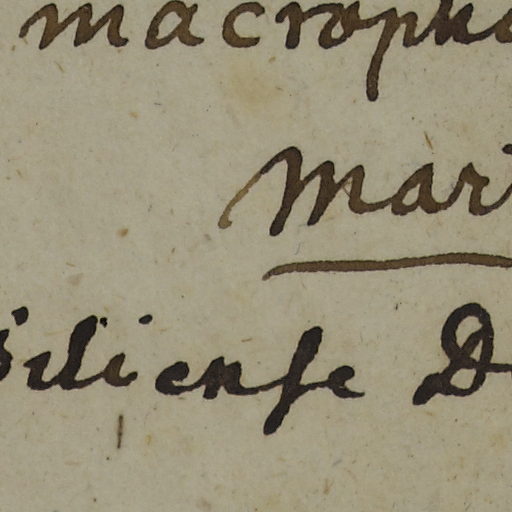 macroph
Mar
siliense D